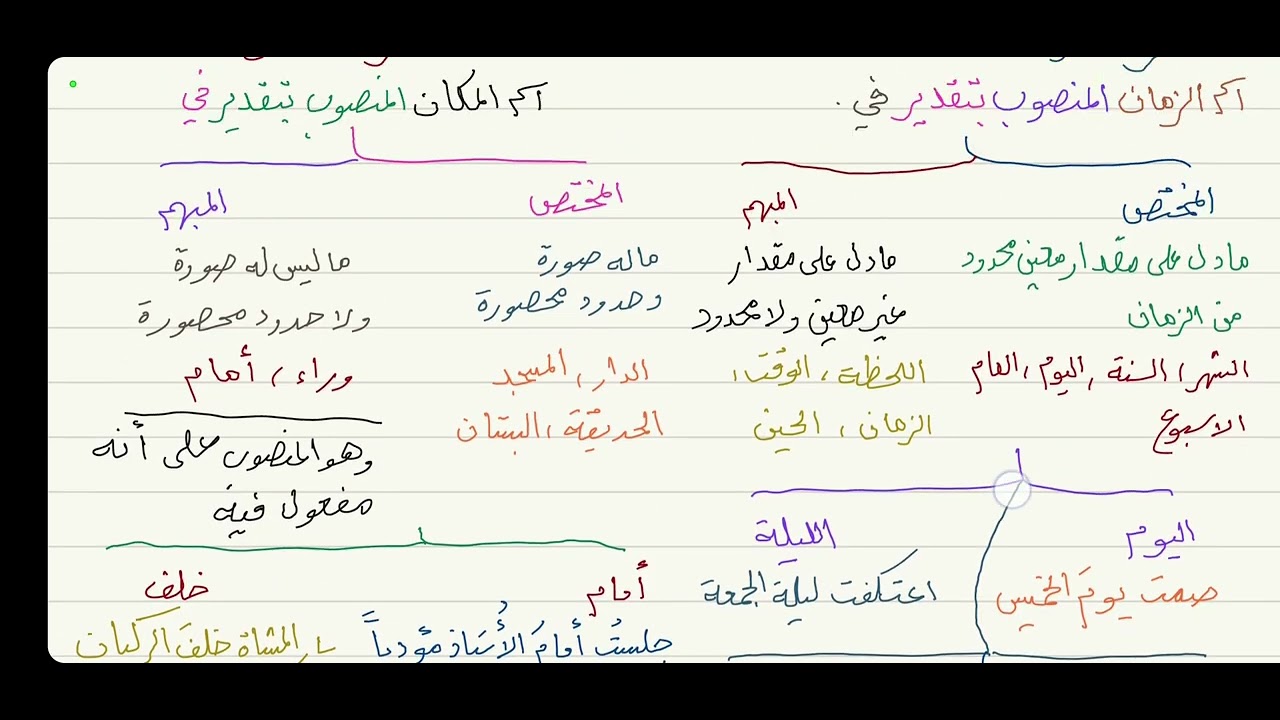 اسم الزمان المنصوب بتقدير في.
المختص
المبهم
مادل على مقدار معين محدود
من الزمان
مادل على مقدار
غير معين ولا محدود
الشهر، السنة، اليوم، العام
الاسبوع
اللحظة، الوقت،
الزمان، الحين
اليوم
الليلة
صمت يومَ الخميس
اعتكفت ليلة الجمعة
اسم المكان المنصوب بتقدير في
المختص
المبهم
ماله صورة
وحدود محصورة
ماليس له صورة
ولا حدود محصورة
الدار، المسجد
الحديقة، البستان
وراء، أمام
وهو المنصوب على أنه
مفعول فيه
أمام
خلف
جلستُ أمامَ الأُستاذ مؤدباً
سار المشاة خلفَ الركبان